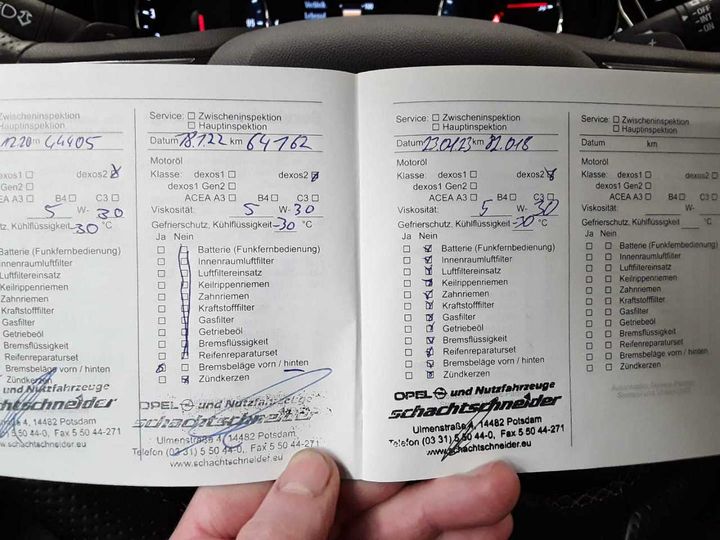 OFF
INT
ON
Zwischeninspektion
Hauptinspektion
12.20 km 44405
Motoröl
dexos1 dexos2
dexos1 Gen2
ACEA A3 B4 C3
Viskosität: 5 W-30
Gefrierschutz, Kühlflüssigkeit -30 °C
Ja Nein
Batterie (Funkfernbedienung)
Innenraumluftfilter
Luftfiltereinsatz
Keilrippenriemen
Zahnriemen
Kraftstofffilter
Gasfilter
Getriebeöl
Bremsflüssigkeit
Reifenreparaturset
Bremsbeläge vorn / hinten
Zündkerzen
und Nutzfahrzeuge
schachtschneider
4, 14482 Potsdam
50 44-0, Fax 5 50 44-271
schachtschneider.eu
Service: Zwischeninspektion
Hauptinspektion
Datum 18.1.22 km 64162
Motoröl
Klasse: dexos1 dexos2
dexos1 Gen2
ACEA A3 B4 C3
Viskosität: 5 W-30
Gefrierschutz, Kühlflüssigkeit -30 °C
Ja Nein
Batterie (Funkfernbedienung)
Innenraumluftfilter
Luftfiltereinsatz
Keilrippenriemen
Zahnriemen
Kraftstofffilter
Gasfilter
Getriebeöl
Bremsflüssigkeit
Reifenreparaturset
Bremsbeläge vorn / hinten
Zündkerzen
OPEL und Nutzfahrzeuge
schachtschneider
Ulmenstraße 4, 14482 Potsdam
Telefon (03 31) 5 50 44-0, Fax 5 50 44-271
www.schachtschneider.eu
Service: Zwischeninspektion
Hauptinspektion
Datum 23.01.23 km 82.018
Motoröl
Klasse: dexos1 dexos2
dexos1 Gen2
ACEA A3 B4 C3
Viskosität: 5 W-30
Gefrierschutz, Kühlflüssigkeit -30 °C
Ja Nein
Batterie (Funkfernbedienung)
Innenraumluftfilter
Luftfiltereinsatz
Keilrippenriemen
Zahnriemen
Kraftstofffilter
Gasfilter
Getriebeöl
Bremsflüssigkeit
Reifenreparaturset
Bremsbeläge vorn / hinten
Zündkerzen
OPEL und Nutzfahrzeuge
schachtschneider
Ulmenstraße 4, 14482 Potsdam
Telefon (03 31) 5 50 44-0, Fax 5 50 44-271
www.schachtschneider.eu
Service: Zwischeninspektion
Hauptinspektion
Datum km
Motoröl
Klasse: dexos1 dexos2
dexos1 Gen2
ACEA A3 B4 C3
Viskosität: W-
Gefrierschutz, Kühlflüssigkeit °C
Ja Nein
Batterie (Funkfernbedienung)
Innenraumluftfilter
Luftfiltereinsatz
Keilrippenriemen
Zahnriemen
Kraftstofffilter
Gasfilter
Getriebeöl
Bremsflüssigkeit
Reifenreparaturset
Bremsbeläge vorn / hinten
Zündkerzen